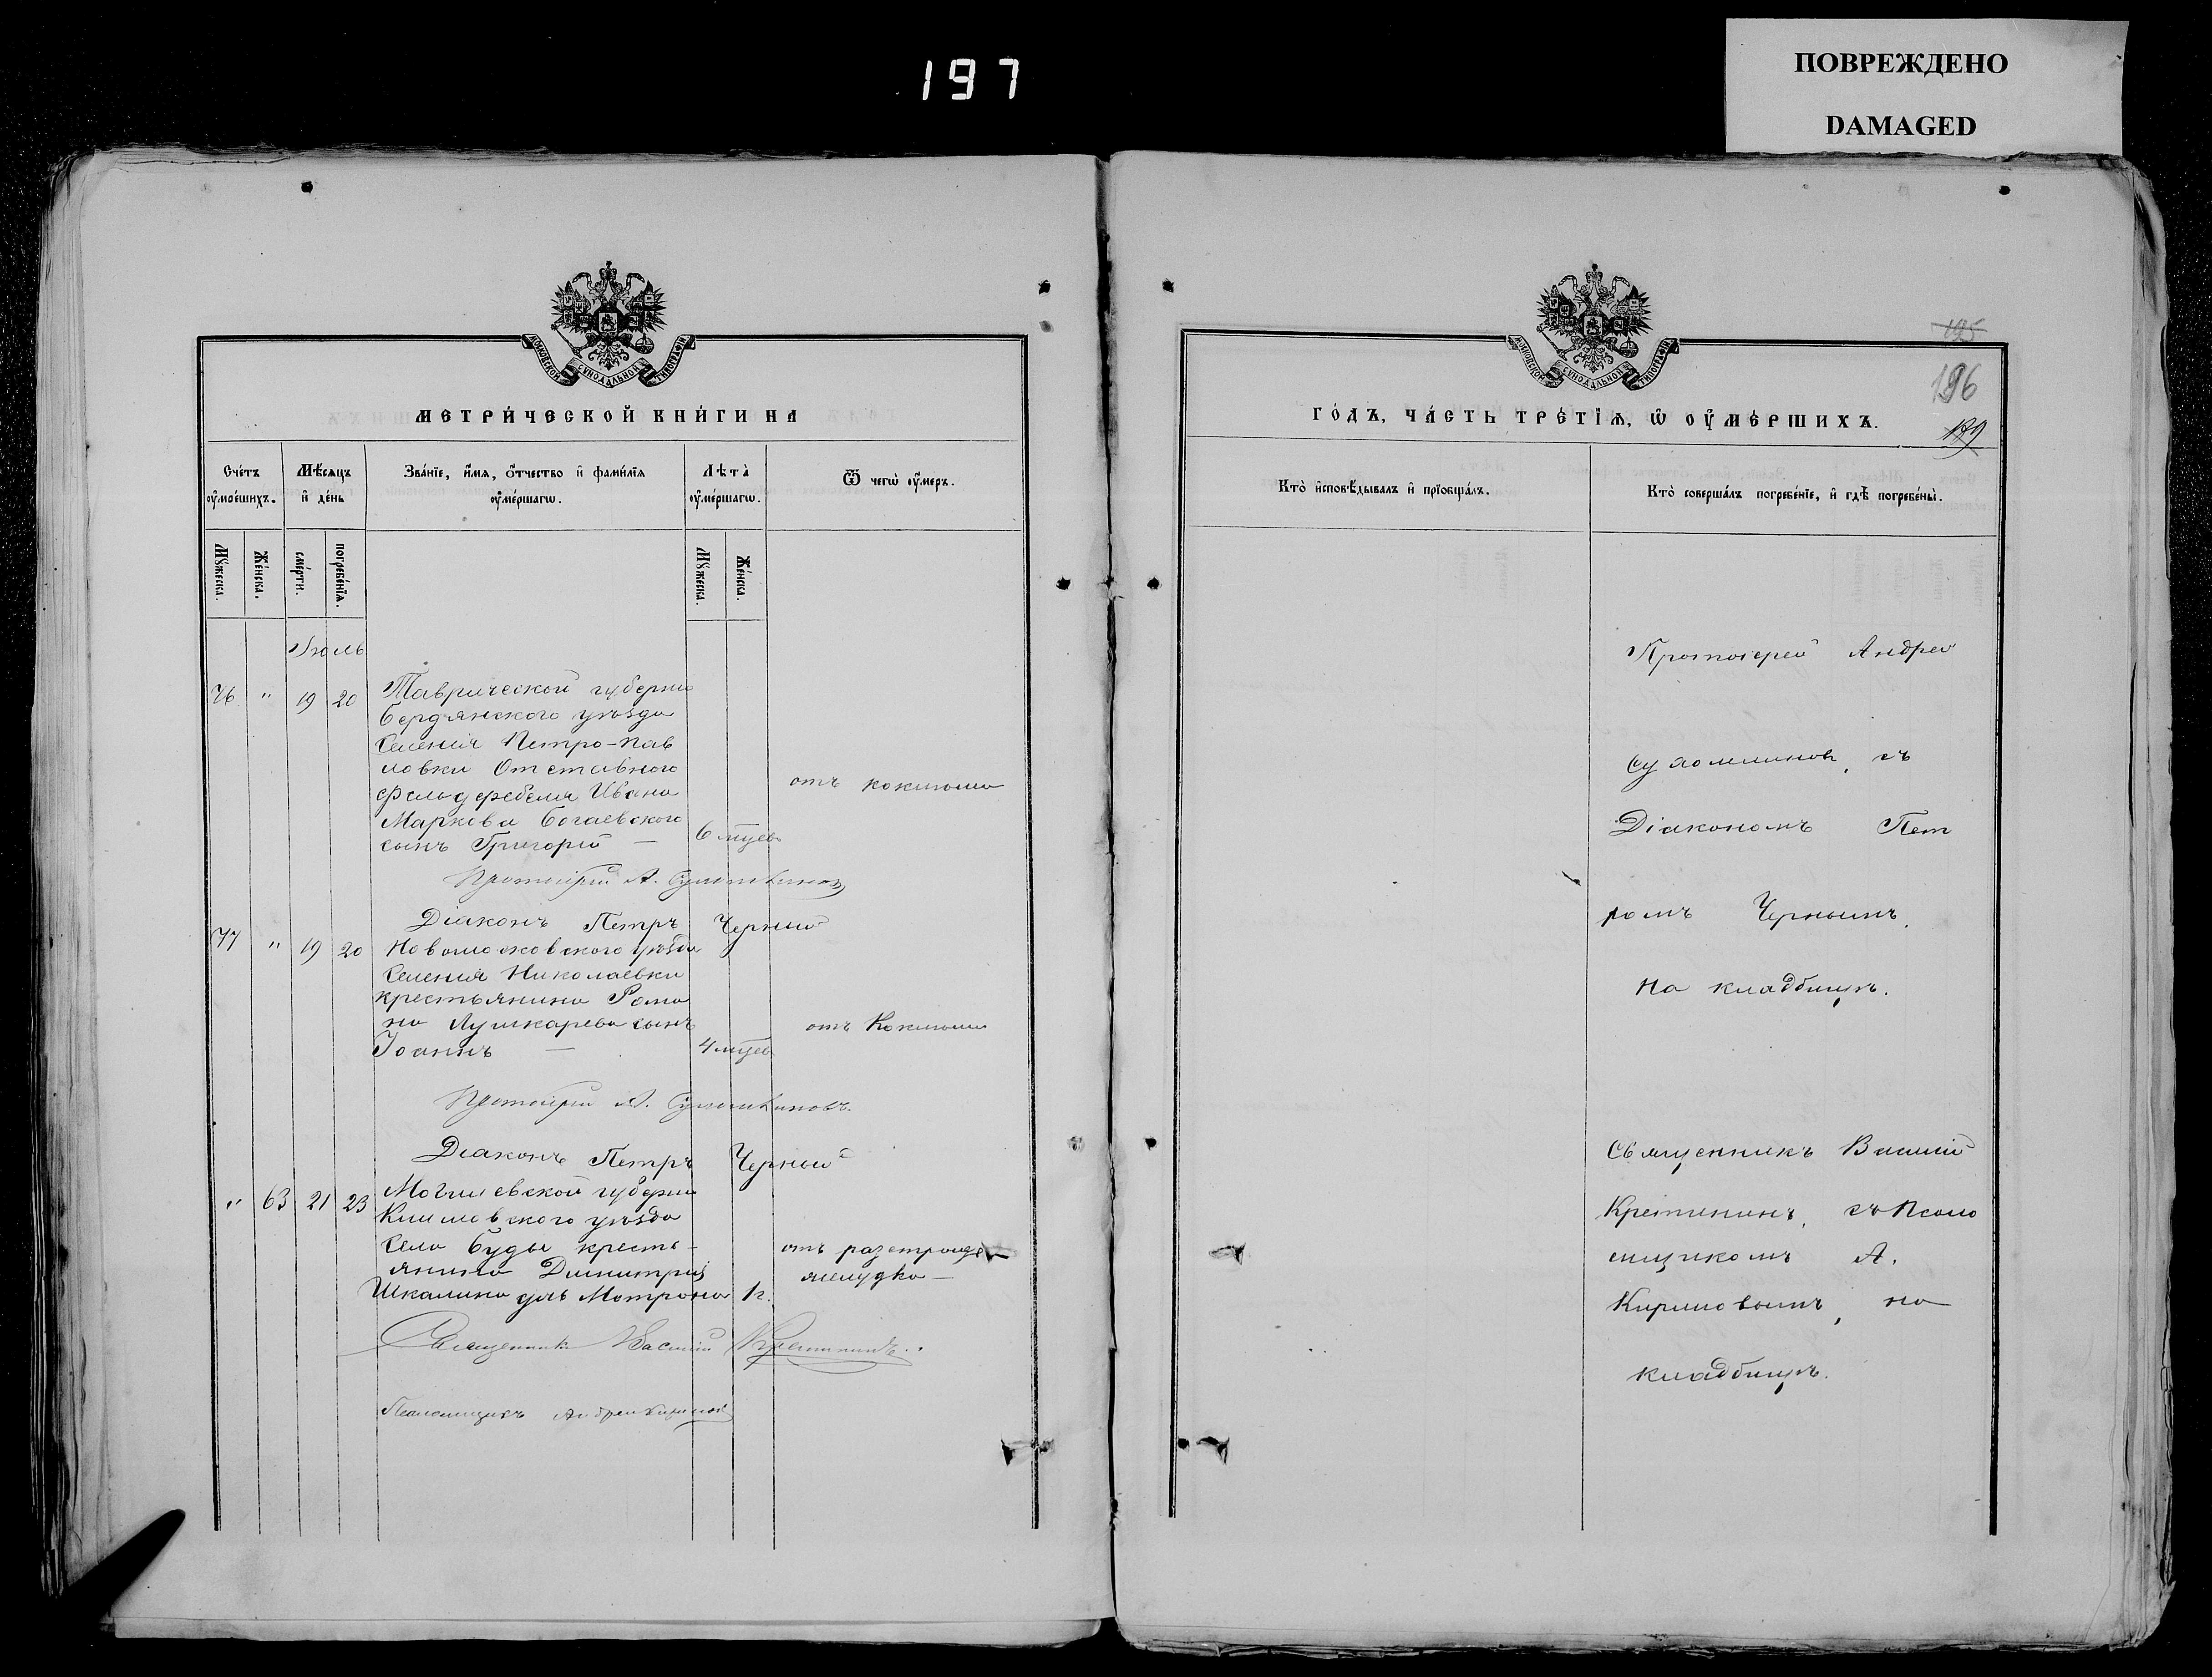 197
ПОВРЕЖДЕНО
DAMAGED
МОСКОВСКОЙ СѴНОДАЛЬНОЙ ТИПОГРАФІИ
МЕТРИ́ЧЕСКОЙ КНИ́ГИ НА
Сче́тъ оу҆ме́ршихъ.
Мѣ́сяцъ и҆ де́нь
Зва́нїе, и҆́мя, ѻ҆́тчество и҆ фами́лїя оу҆ме́ршагѡ.
Лѣта̀ оу҆ме́ршагѡ.
Ѿ чегѡ̀ оу҆́меръ.
Мꙋ́жеска.
Же́нска.
сме́рти.
погребе́нїя.
Мꙋ́жеска.
Же́нска.
Іюль
76 " 19 20 Таврической губерніи
Бердянского уѣзда
Селенія Петро-Пав
ловки Отставного
фельдфебеля Ивана
Маркова Богаевского
сынъ Григорій — 6 мцев
отъ коклюша
Протоіерей А. Сухомлиновъ
Діаконъ Петръ Черный
77 " 19 20 Новомосковского уѣзда
Селенія Николаевки
крестьянина Рома
на Лушкарева сынъ
Іоаннъ — 4 мцев
отъ Коклюша
Протоіерей А. Сухомлиновъ.
Діаконъ Петръ Черный
" 63 21 23 Могилевской губерніи
Климовского уѣзда
Села Буды кресть-
янина Димитрія
Шкалина дчь Матрона 1 г.
отъ разстройс
желудка —
Священникъ Василій Крестининъ.
Псаломщикъ Андрей
МОСКОВСКОЙ СѴНОДАЛЬНОЙ ТИПОГРАФІИ
195
196
ГО́ДЪ, ЧА́СТЬ ТРЕ́ТЇЯ, Ѡ҆ ОУ҆МЕ́РШИХЪ.
Кто̀ и҆сповѣ́дывалъ и҆ прїобща́лъ.
Кто̀ соверша́лъ погребе́нїе, и҆ гдѣ̀ погребены̀.
Протоіерей Андрей
Сухомлинов, съ
Діакономъ Пет
ромъ Чернымъ.
На кладбищѣ.
Священникъ Василій
Крестининъ, съ Псало
мщикомъ А.
Кириловымъ, на
кладбищѣ.